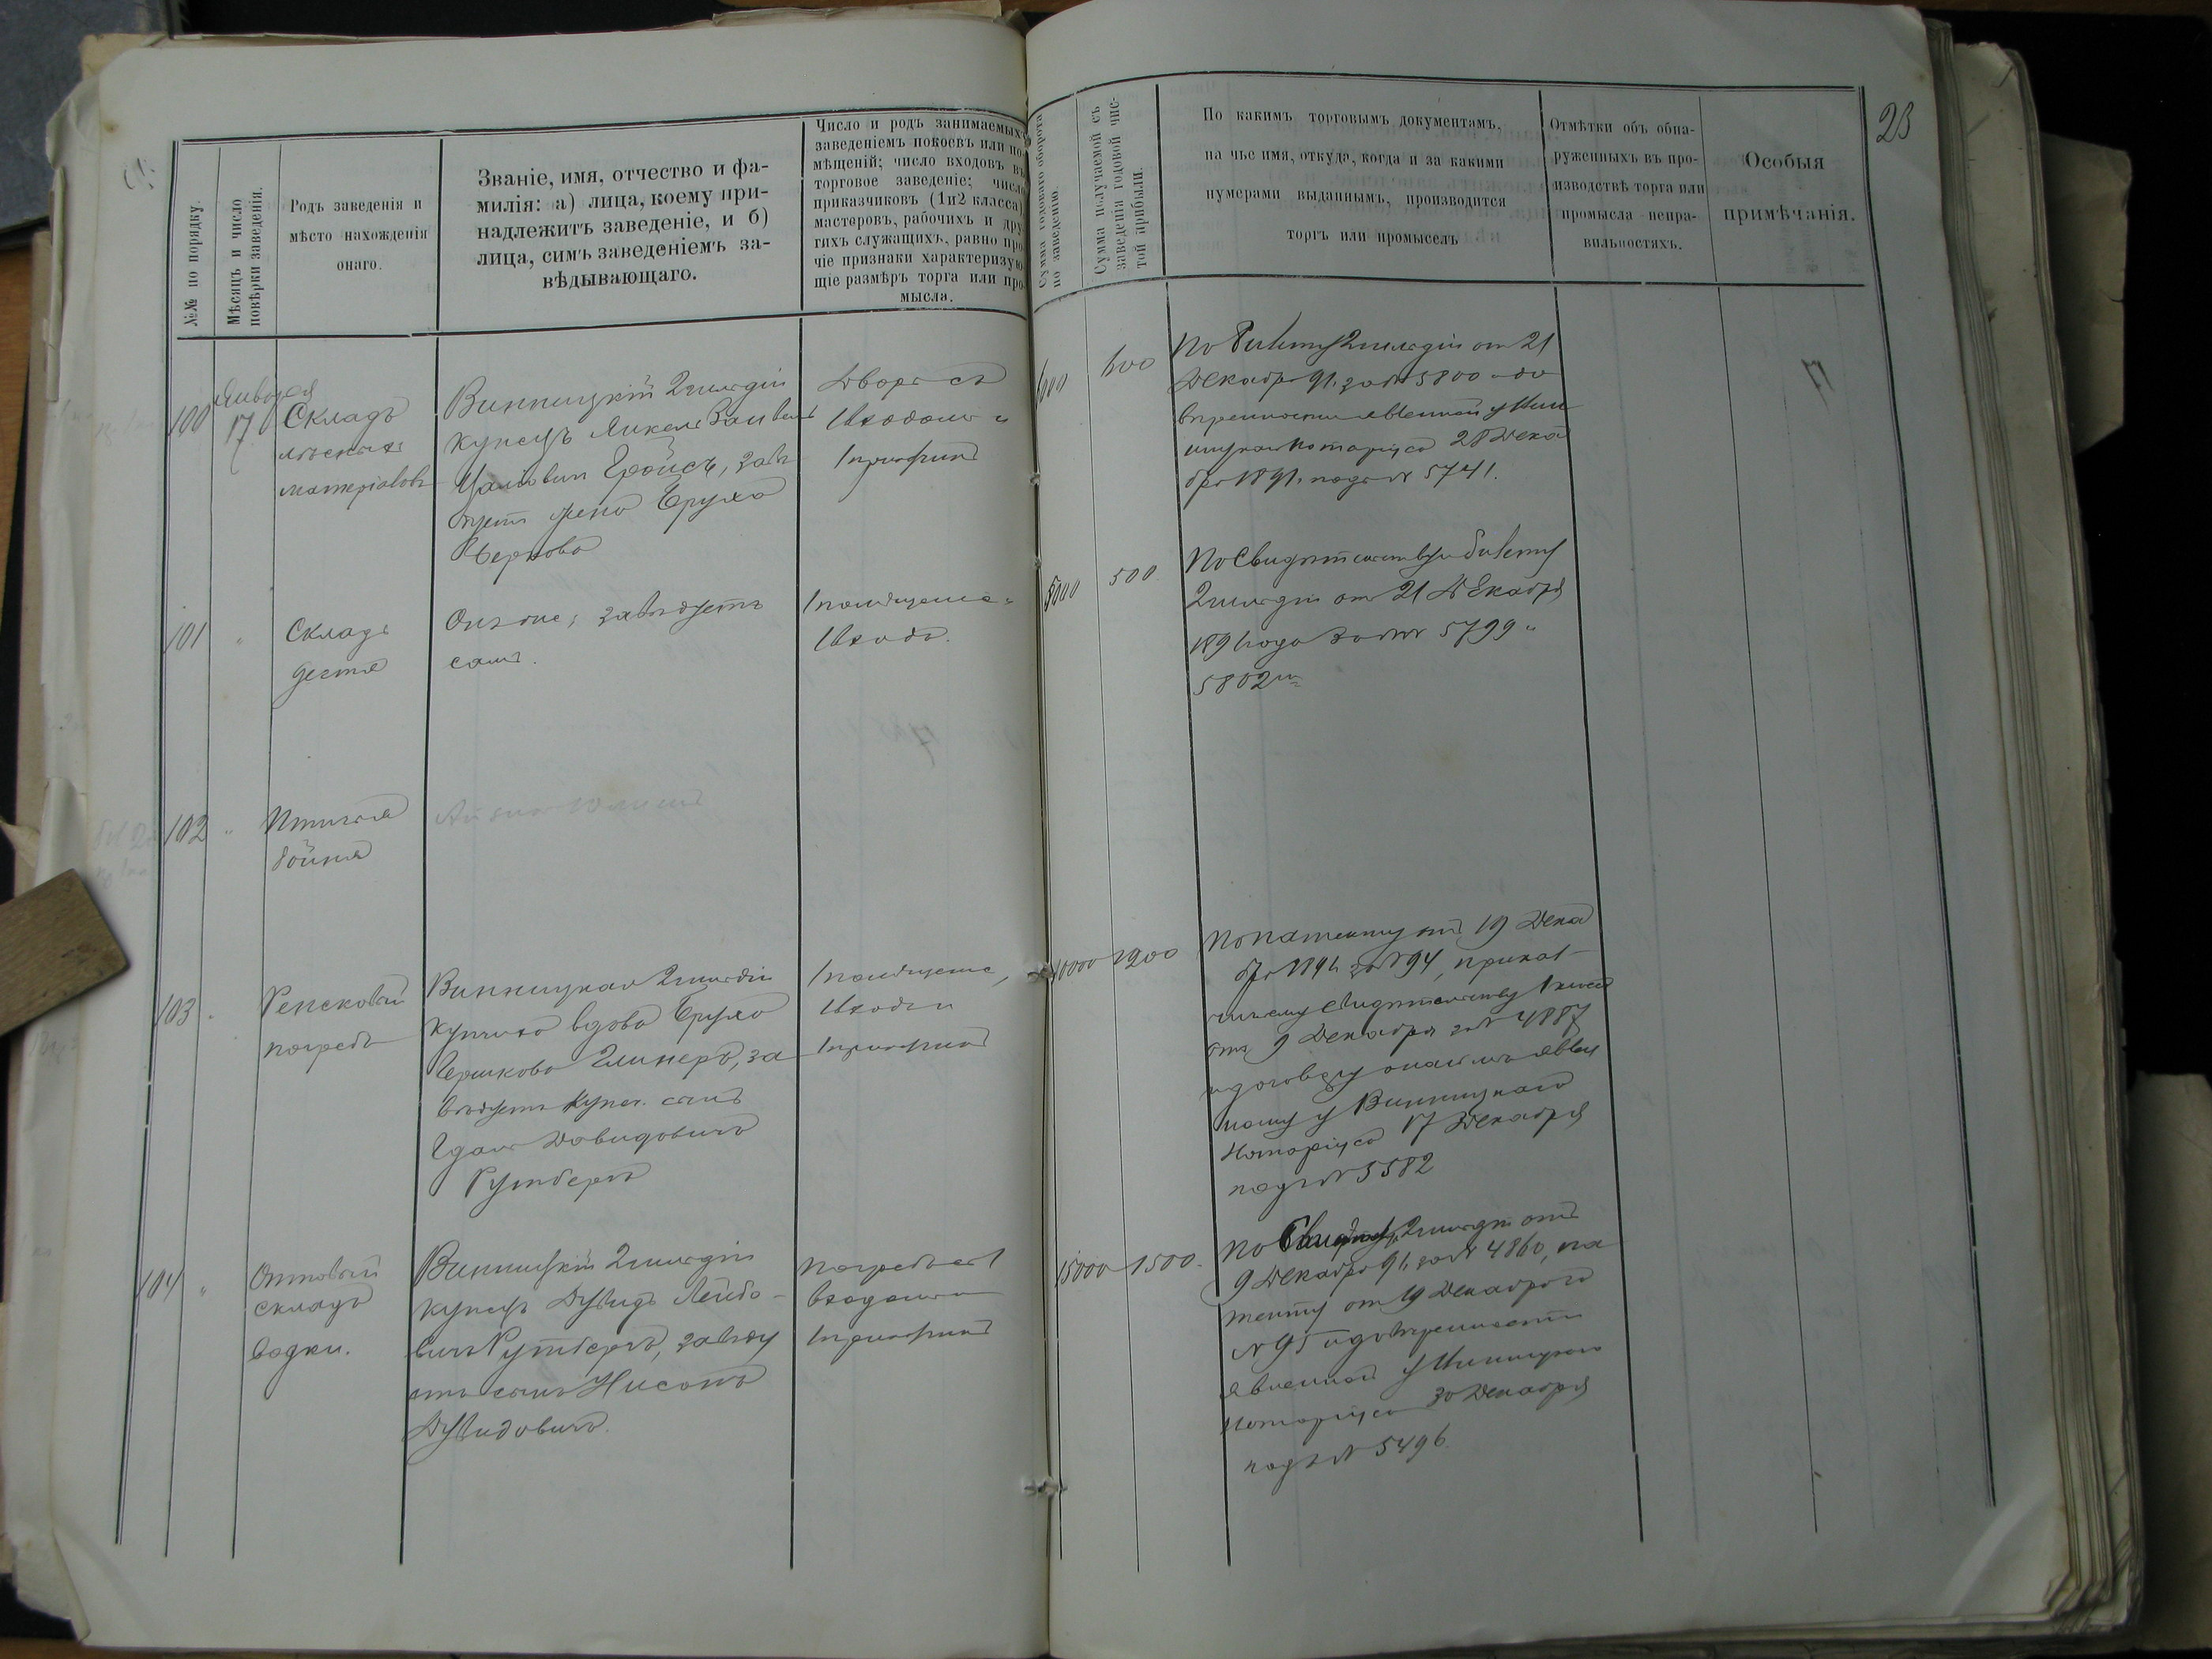 23
№№ по порядку.
Мѣсяцъ и число
повѣрки заведенія.
Родъ заведенія и
мѣсто нахожденія
онаго.
Званіе, имя, отчество и фа-
милія: а) лица, коему при-
надлежитъ заведеніе, и б)
лица, симъ заведеніемъ за-
вѣдывающаго.
Число и родъ занимаемыхъ
заведеніемъ покоевъ или по-
мѣщеній; число входовъ въ
торговое заведеніе; число
приказчиковъ (1 и 2 класса),
мастеровъ, рабочихъ и дру-
гихъ служащихъ, равно про-
чіе признаки характеризую-
щіе размѣръ торга или про-
мысла.
Сумма годоваго оборота
по заведенію.
Сумма получаемой съ
заведенія годовой чис-
той прибыли.
По какимъ торговымъ документамъ,
на чье имя, откуда, когда и за какими
нумерами выданнымъ, производится
торгъ или промыселъ
Отмѣтки объ обна-
руженныхъ въ про-
изводствѣ торга или
промысла непра-
вильностяхъ.
Особыя
примѣчанія.
100
Января
17
Складъ
лѣсныхъ
матеріаловъ
Винницкій 2 гильдіи
купецъ Янкель
завѣ
дуетъ жена Еруха
Беркова
Дворъ съ
1 входомъ и
1 прикащикъ
600
По билету 2 гильдіи от 21
Декабря 91 г. за № 5800 и до
вѣренности явленной у Вин
ницкаго Нотаріуса 28 Дека
бря 1891 г. подъ № 5741.
101
Складъ
дегтя
Онъ же, завѣдуетъ
самъ.
1 помѣщеніе
1 входъ.
5000
500
По Свидѣтельству и билету
2 гильдіи от 21 Декабря
1891 года за №№ 5799 и
5802
102
Птичья
бойня
103
Ренсковый
погребъ
Винницкая 2 гильдіи
купчиха вдова Еруха
Берикова за
вѣдуетъ купеч. сынъ
Давидовичъ
Гутбергъ
1 помѣщеніе,
1 входъ и
1 прикащикъ
10000
1200
По патенту от 19 Дека
бря 1891 г. за № 94, прикащ
ичьему свидѣтельству 1 класса
отъ 9 Декабря за № 4887
и договору о найме явлен
ному у Винницкаго
Нотаріуса 17 Декабря
подъ № 5582
104
Оптовый
складъ
водки.
Винницкій 2 гильдіи
купецъ Дувидъ Лейбо-
вичъ Гутбергъ, завѣду
етъ сынъ Нисонъ
Дувидовичъ.
Погребъ съ 1
входомъ и
1 прикащикъ
15000
1500.
По Свидѣт. 2 гильдіи отъ
9 Декабря 91 г. за № 4860, па
тенту от 19 Декабря за
№ 95 и довѣренности
явленной у Винницкаго
Нотаріуса 30 Декабря
подъ № 5496